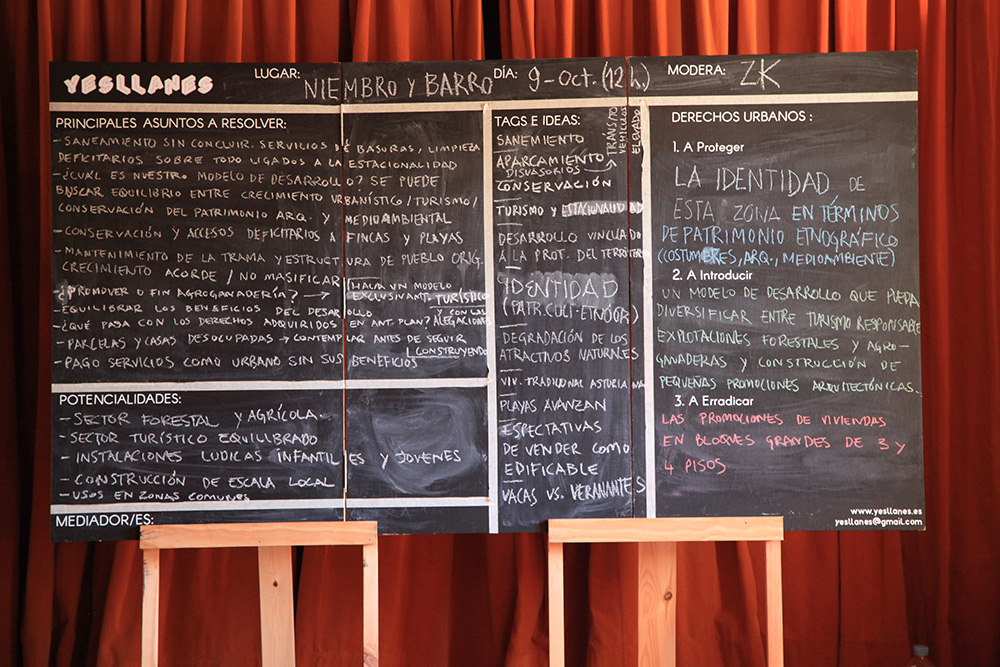 YESLLANES
LUGAR: NIEMBRO Y BARRO
DÍA: 9-Oct. (12 h.)
MODERA: ZK
PRINCIPALES ASUNTOS A RESOLVER:
- SANEAMIENTO SIN CONCLUIR. SERVICIOS DE BASURAS, LIMPIEZA
DEFICITARIOS SOBRE TODO LIGADOS A LA ESTACIONALIDAD
- ¿CUÁL ES NUESTRO MODELO DE DESARROLLO? SE PUEDE
BUSCAR EQUILIBRIO ENTRE CRECIMIENTO URBANÍSTICO/TURISMO/
CONSERVACIÓN DEL PATRIMONIO ARQ. Y MEDIOAMBIENTAL
- CONSERVACIÓN Y ACCESOS DEFICITARIOS A FINCAS Y PLAYAS
- MANTENIMIENTO DE LA TRAMA Y ESTRUCTURA DE PUEBLO ORIG.
CRECIMIENTO ACORDE / NO MASIFICAR
¿PROMOVER O FIN AGROGANADERÍA? → HACIA UN MODELO
EXCLUSIVAMT. TURÍSTICO
- EQUILIBRAR LOS BENEFICIOS DEL DESARROLLO
- ¿QUÉ PASA CON LOS DERECHOS ADQUIRIDOS EN ANT. PLAN? Y CON LAS ALEGACIONES
- PARCELAS Y CASAS DESOCUPADAS → CONTEMPLAR ANTES DE SEGUIR
CONSTRUYENDO
- PAGO SERVICIOS COMO URBANO SIN SUS BENEFICIOS
POTENCIALIDADES:
- SECTOR FORESTAL Y AGRÍCOLA.
- SECTOR TURÍSTICO EQUILIBRADO
- INSTALACIONES LUDICAS INFANTILES Y JOVENES
- CONSTRUCCIÓN DE ESCALA LOCAL
- USOS EN ZONAS COMUNES
MEDIADOR/ES:
TAGS E IDEAS:
SANEMIENTO
APARCAMIENTO
DISUASORIOS → TRÁNSITO
VEHÍCULOS
ELEVADO
CONSERVACIÓN
TURISMO Y ESTACIONALIDAD
DESARROLLO VINCULADO
A LA PROT. DEL TERRITERI
IDENTIDAD
(PATR. CULT-ETNOGR)
DEGRADACIÓN DE LOS
ATRACTIVOS NATURALES
VIV. TRADICIONAL ASTURIANA
PLAYAS AVANZAN
ESPECTATIVAS
DE VENDER COMO
EDIFICABLE
VACAS VS. VERANANTES
DERECHOS URBANOS :
1. A Proteger
LA IDENTIDAD DE
ESTA ZONA EN TÉRMINOS
DE PATRIMONIO ETNOGRÁFICO
(COSTUMBRES, ARQ., MEDIOAMBIENTE)
2. A Introducir
UN MODELO DE DESARROLLO QUE PUEDA
DIVERSIFICAR ENTRE TURISMO RESPONSABLE
EXPLOTACIONES FORESTALES Y AGRO-
GANADERAS Y CONSTRUCCIÓN DE
PEQUEÑAS PROMOCIONES ARQUITECTÓNICAS.
3. A Erradicar
LAS PROMOCIONES DE VIVIENDAS
EN BLOQUES GRANDES DE 3 Y
4 PISOS
www.yesllanes.es
yesllanes@gmail.com